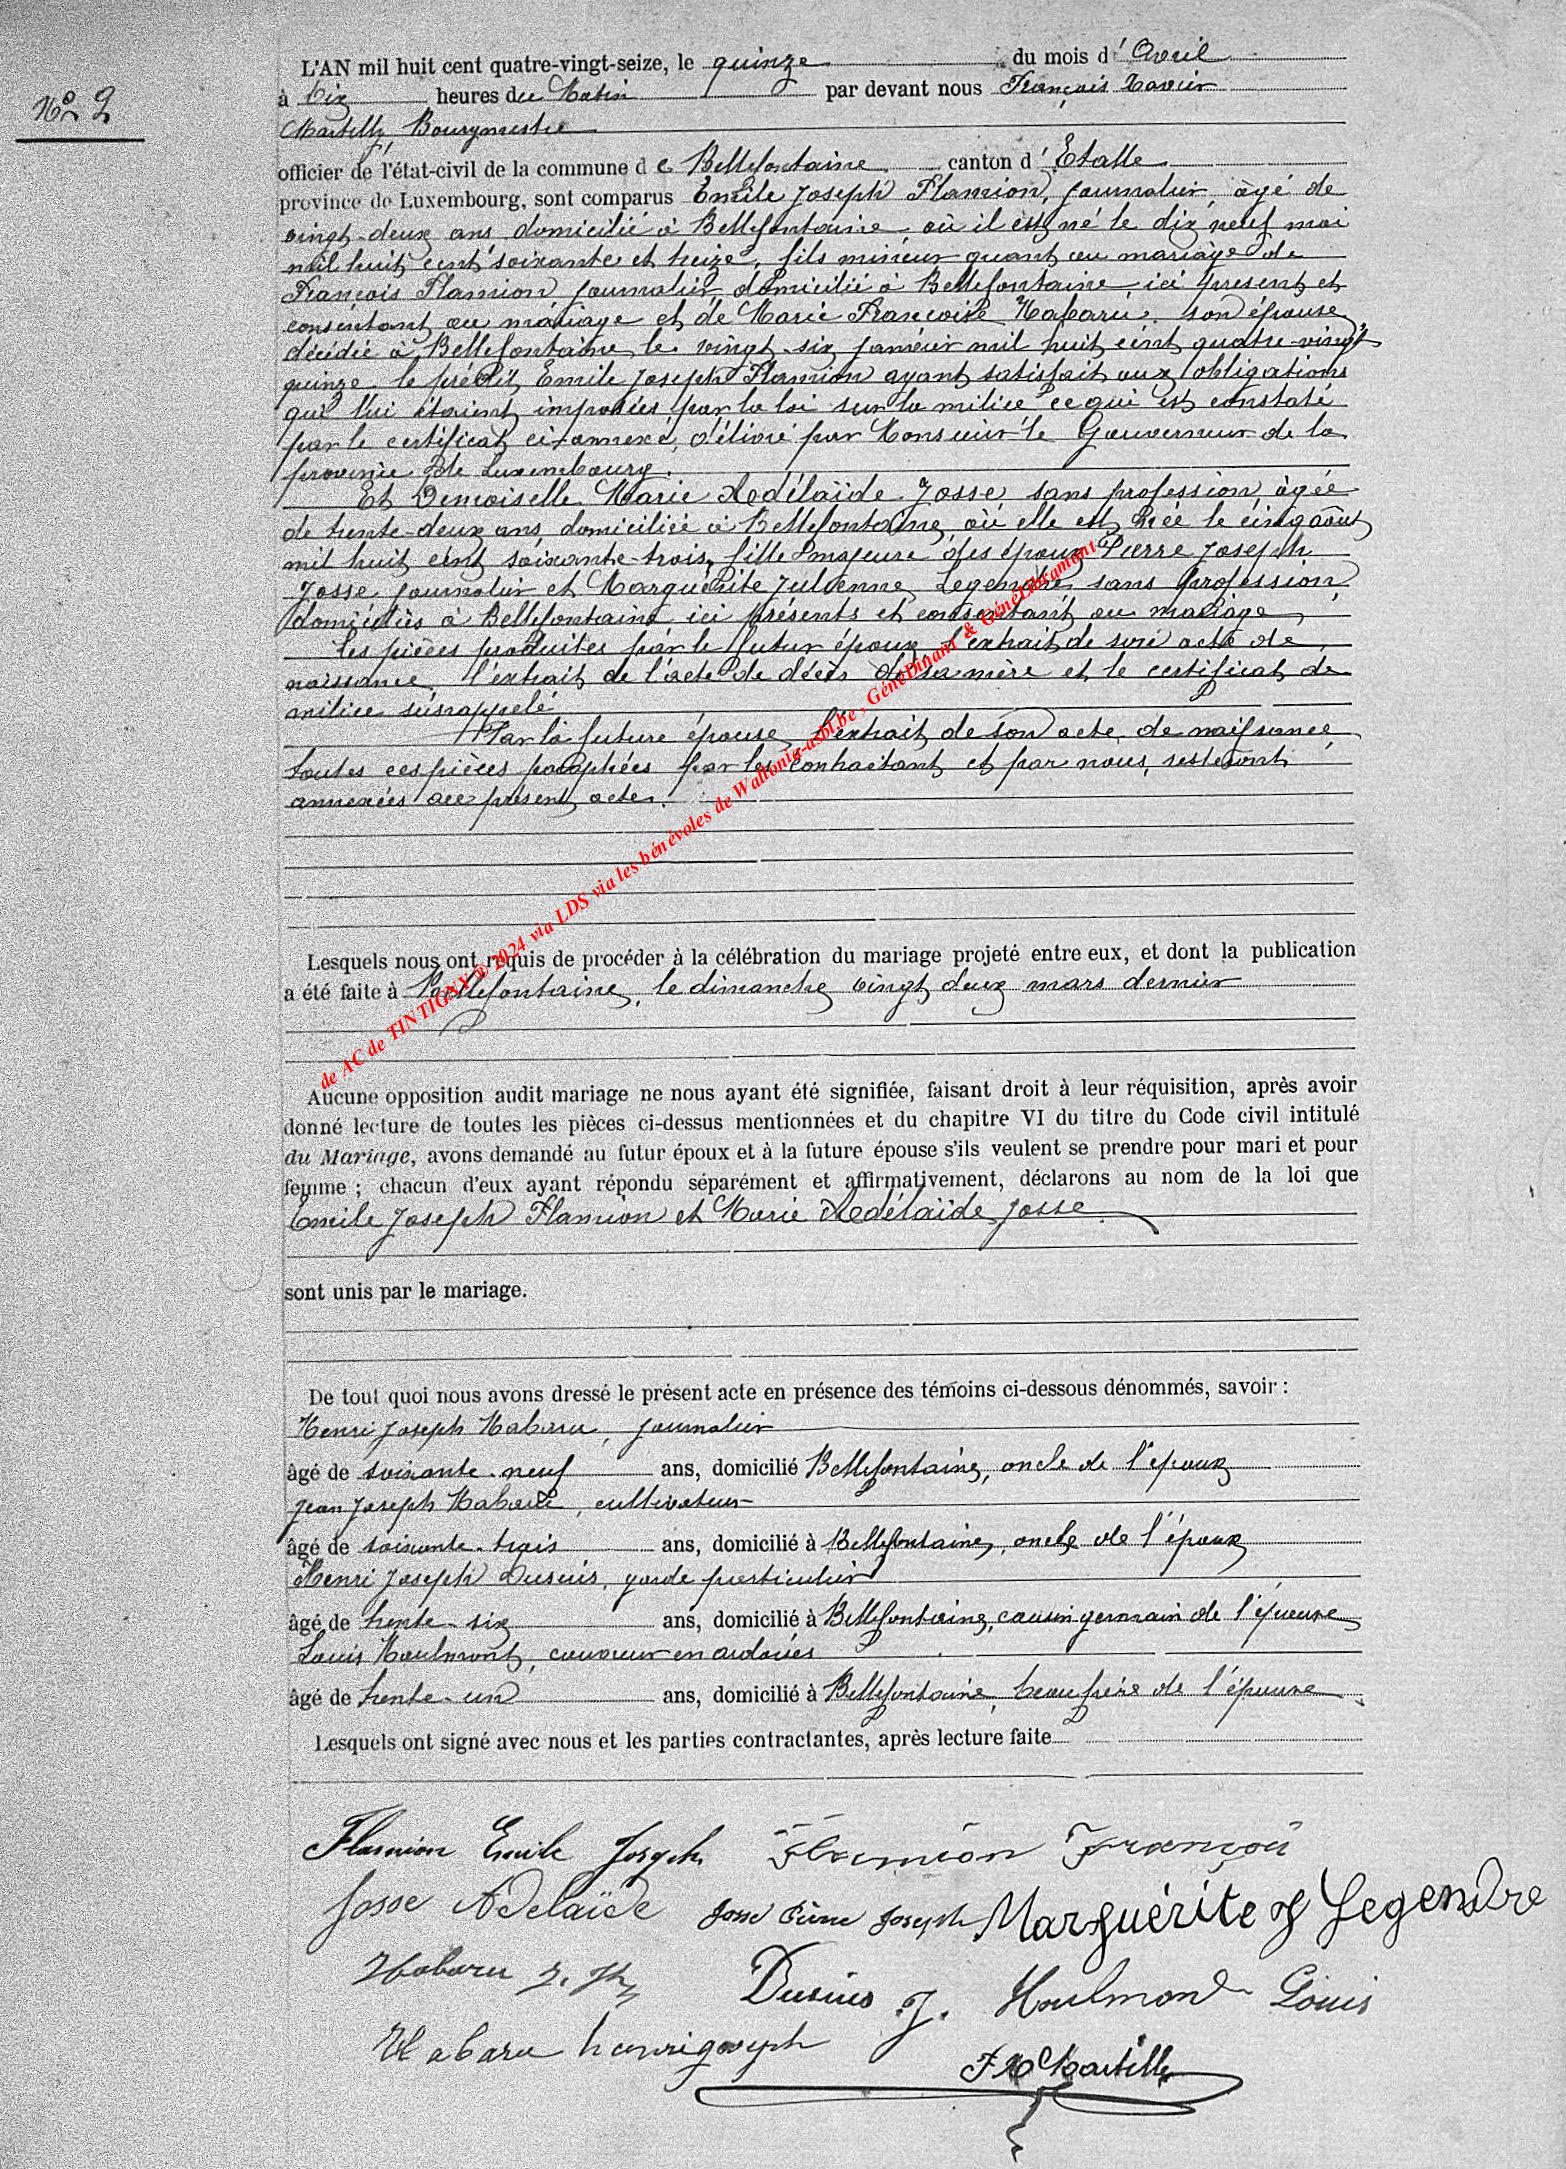 N° 2
L'AN mil huit cent quatre-vingt-seize, le quinze du mois d'Avril
à dix heures du Matin par devant nous François Xavier
Martilly Bourgmestre
officier de l'état-civil de la commune de Bellefontaine canton d'Etalle
province de Luxembourg, sont comparus Emile Joseph Flamion, journalier, âgé de
vingt-deux ans domicilié à Bellefontaine où il est né le dix neuf mai
mil huit cent soixante et treize, fils mineur quant au mariage de
François Flamion journalier domicilié à Bellefontaine, ici présent et
consentant au mariage et de Marie Françoise Habaru, son épouse
décédée à Bellefontaine le vingt-six janvier mil huit cent quatre-vingt
quinze, le prédit Emile Joseph Flamion ayant satisfait aux obligations
qui lui étaient imposées par la loi sur la milice ce qui est constaté
par le certificat ci-annexé, délivré par Monsieur le Gouverneur de la
province de Luxembourg.
Et Demoiselle Marie Adélaïde Josse sans profession, âgée
de trente-deux ans, domiciliée à Bellefontaine, où elle est née le cinq août
mil huit cent soixante-trois, fille majeure des époux Pierre Joseph
Josse journalier et Marguérite Julienne Legendre, sans profession,
domiciliés à Bellefontaine ici présents et consentant au mariage,
Les pièces produites par le futur époux l'extrait de son acte de
naissance, l'extrait de l'acte de décès de sa mère et le certificat de
milice susrappelé
Par la future épouse, l'extrait de son acte de naissance,
toutes ces pièces paraphées par les contractant et par nous, resteront
annexées au présent acte.
de AC de TINTIGNY © 2024 via LDS via les bénévoles de Wallonia-asbl.be, GénéDinant & GénéLibramont
Lesquels nous ont requis de procéder à la célébration du mariage projeté entre eux, et dont la publication
a été faite à Bellefontaine, le dimanche vingt deux mars dernier
Aucune opposition audit mariage ne nous ayant été signifiée, faisant droit à leur réquisition, après avoir
donné lecture de toutes les pièces ci-dessus mentionnées et du chapitre VI du titre du Code civil intitulé
du Mariage, avons demandé au futur époux et à la future épouse s'ils veulent se prendre pour mari et pour
femme ; chacun d'eux ayant répondu séparément et affirmativement, déclarons au nom de la loi que
Emile Joseph Flamion et Marie Adélaïde Josse
sont unis par le mariage.
De tout quoi nous avons dressé le présent acte en présence des témoins ci-dessous dénommés, savoir :
Henri Joseph Habaru, journalier
âgé de soixante-neuf ans, domicilié Bellefontaine, oncle de l'époux
Jean Joseph Habaru, cultivateur
âgé de soixante-trois ans, domicilié à Bellefontaine, oncle de l'époux
Henri Joseph Dusuis, garde particulier
âgé de trente-six ans, domicilié à Bellefontaine, cousin germain de l'épouse
Louis Houlmont, couvreur en ardoises
âgé de trente-un ans, domicilié à Bellefontaine, beau frère de l'épouse
Lesquels ont signé avec nous et les parties contractantes, après lecture faite
Flamion Emile Joseph Flamion François
Josse Adelaïde Josse Pierre Joseph Marguérite J Legendre
Habaru J. Jh Dusuis J. Houlmont Louis
Habaru henri joseph
F X Martilly